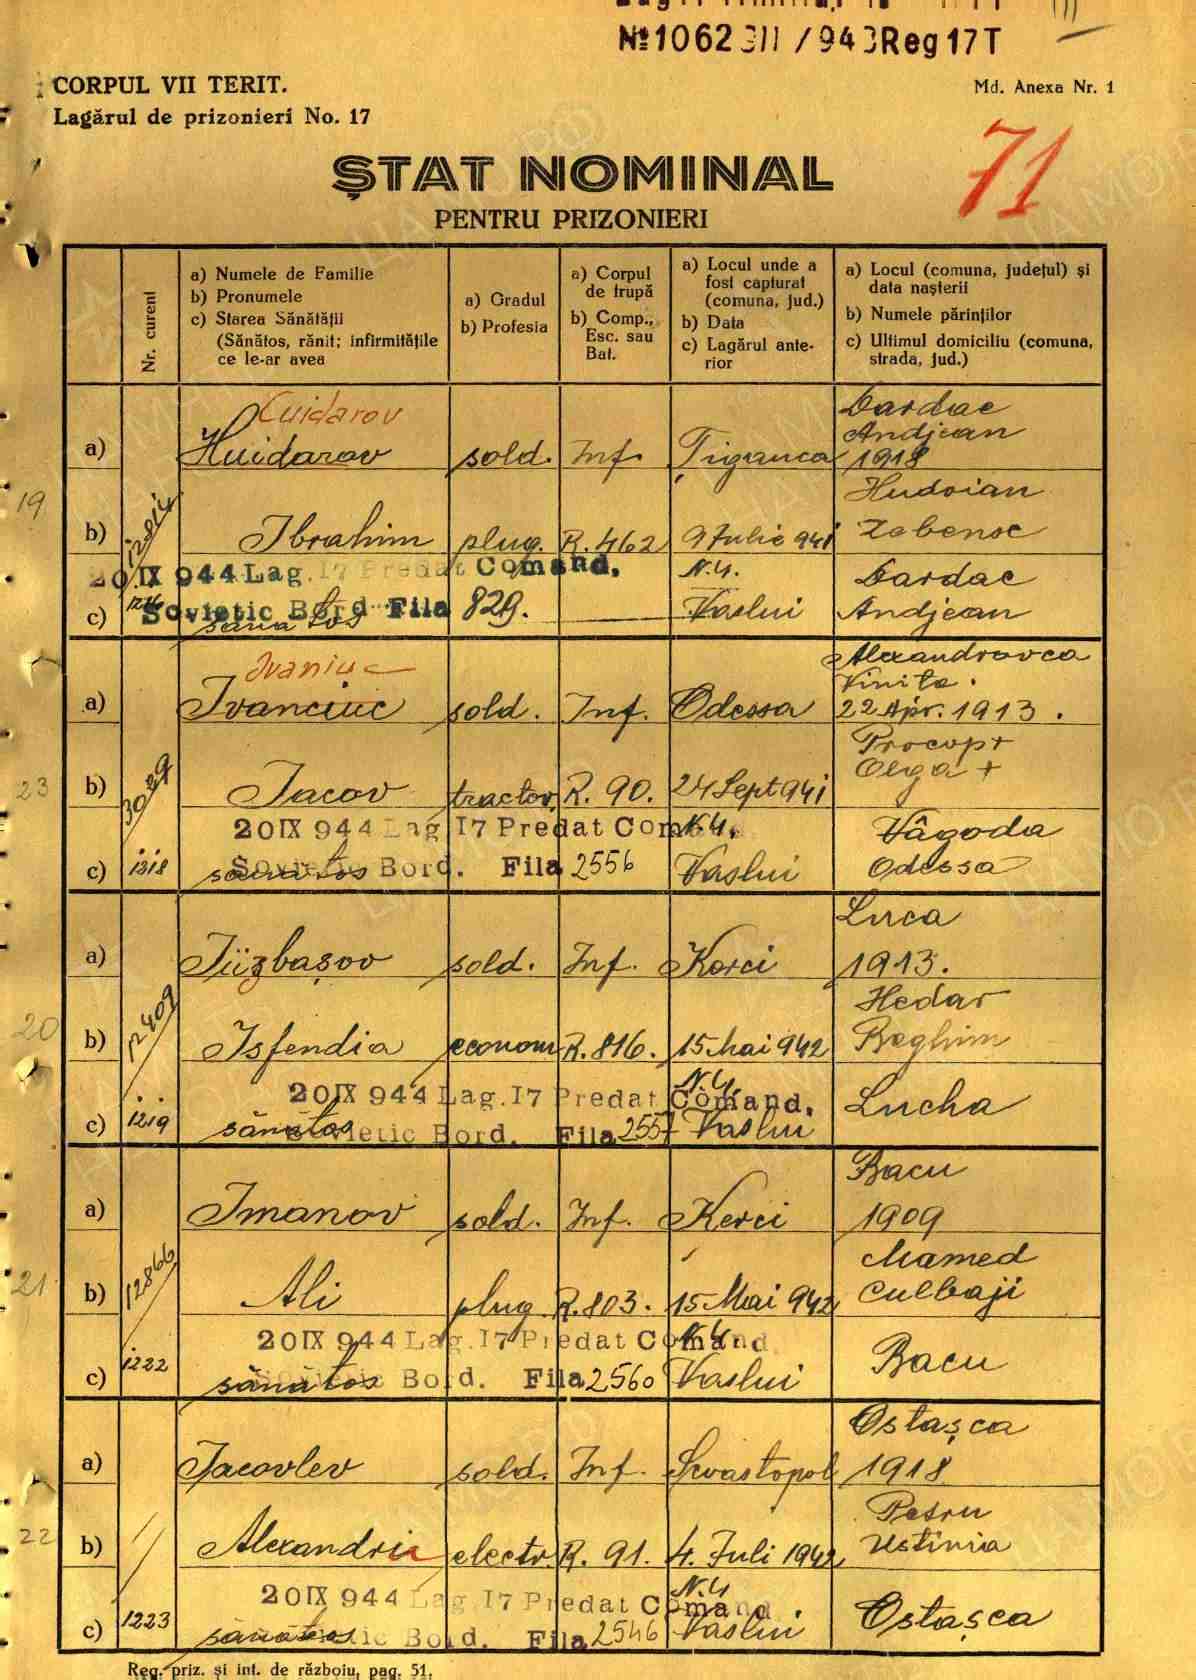 №1062 /943Reg17T
CORPUL VII TERIT.
Lagărul de prizonieri No. 17
Md. Anexa Nr. 1
71
ȘTAT NOMINAL
PENTRU PRIZONIERI
Nr. curent
a) Numele de Familie
b) Pronumele
c) Starea Sănătății
(Sănătos, rănit; infirmitățile
ce le-ar avea
a) Gradul
b) Profesia
a) Corpul
de trupă
b) Comp.,
Esc. sau
Bat.
a) Locul unde a
fost capturat
(comuna, jud.)
b) Data
c) Lagărul ante-
rior
a) Locul (comuna, județul) și
data nașterii
b) Numele părinților
c) Ultimul domiciliu (comuna,
strada, jud.)
19
12814
a) Cuidarov
Huidarov sold. Inf. Țiganca Dardac
Andjean
1918
b) Ibrahim plug. R. 462 9 Iulie 941 Hudoian
Zebense
20 IX 944 Lag. 17 Predat Comand.
Sovietic Bord Fila 829.
c) sănătos N.4. Vaslui Dardac
Andjean
23
30
a) Ivaniuc
Ivanciuc sold. Inf. Odessa Alexandrovca
Vinita.
22 Apr. 1913.
b) Iacov tractor. R. 90. 24 Sept 941 Procop +
Olga +
20 IX 944 Lag. 17 Predat Comand.
Sovietic Bord. Fila 2556
c) 1218 sănătos N.4. Vaslui Vâgoda
Odessa
20
12409
a) Iüzbașov sold. Inf. Kerci Luca
1913.
b) Isfendia econom R. 816. 15 Mai 942 Hedar
Beghim
20 IX 944 Lag. 17 Predat Comand.
Sovietic Bord. Fila 2557
c) 1219 sănătos N.4. Vaslui Lucha
21
12866
a) Imanov sold. Inf. Kerci Bacu
1909
b) Ali plug. R. 803. 15 Mai 942 Mamed
Culbaji
20 IX 944 Lag. 17 Predat Comand.
Sovietic Bord. Fila 2560
c) 1222 sănătos N.4. Vaslui Bacu
22
a) Iacovlev sold. Inf. Sevastopol Ostașca
1918
b) Alexandru electr. R. 91. 4. Juli 1942 Petru
Ustinia
20 IX 944 Lag. 17 Predat Comand
Sovietic Bord. Fila 2546
c) 1223 sănătos N.4 Vaslui Ostașca
Reg. priz. și int. de războiu, pag. 51.